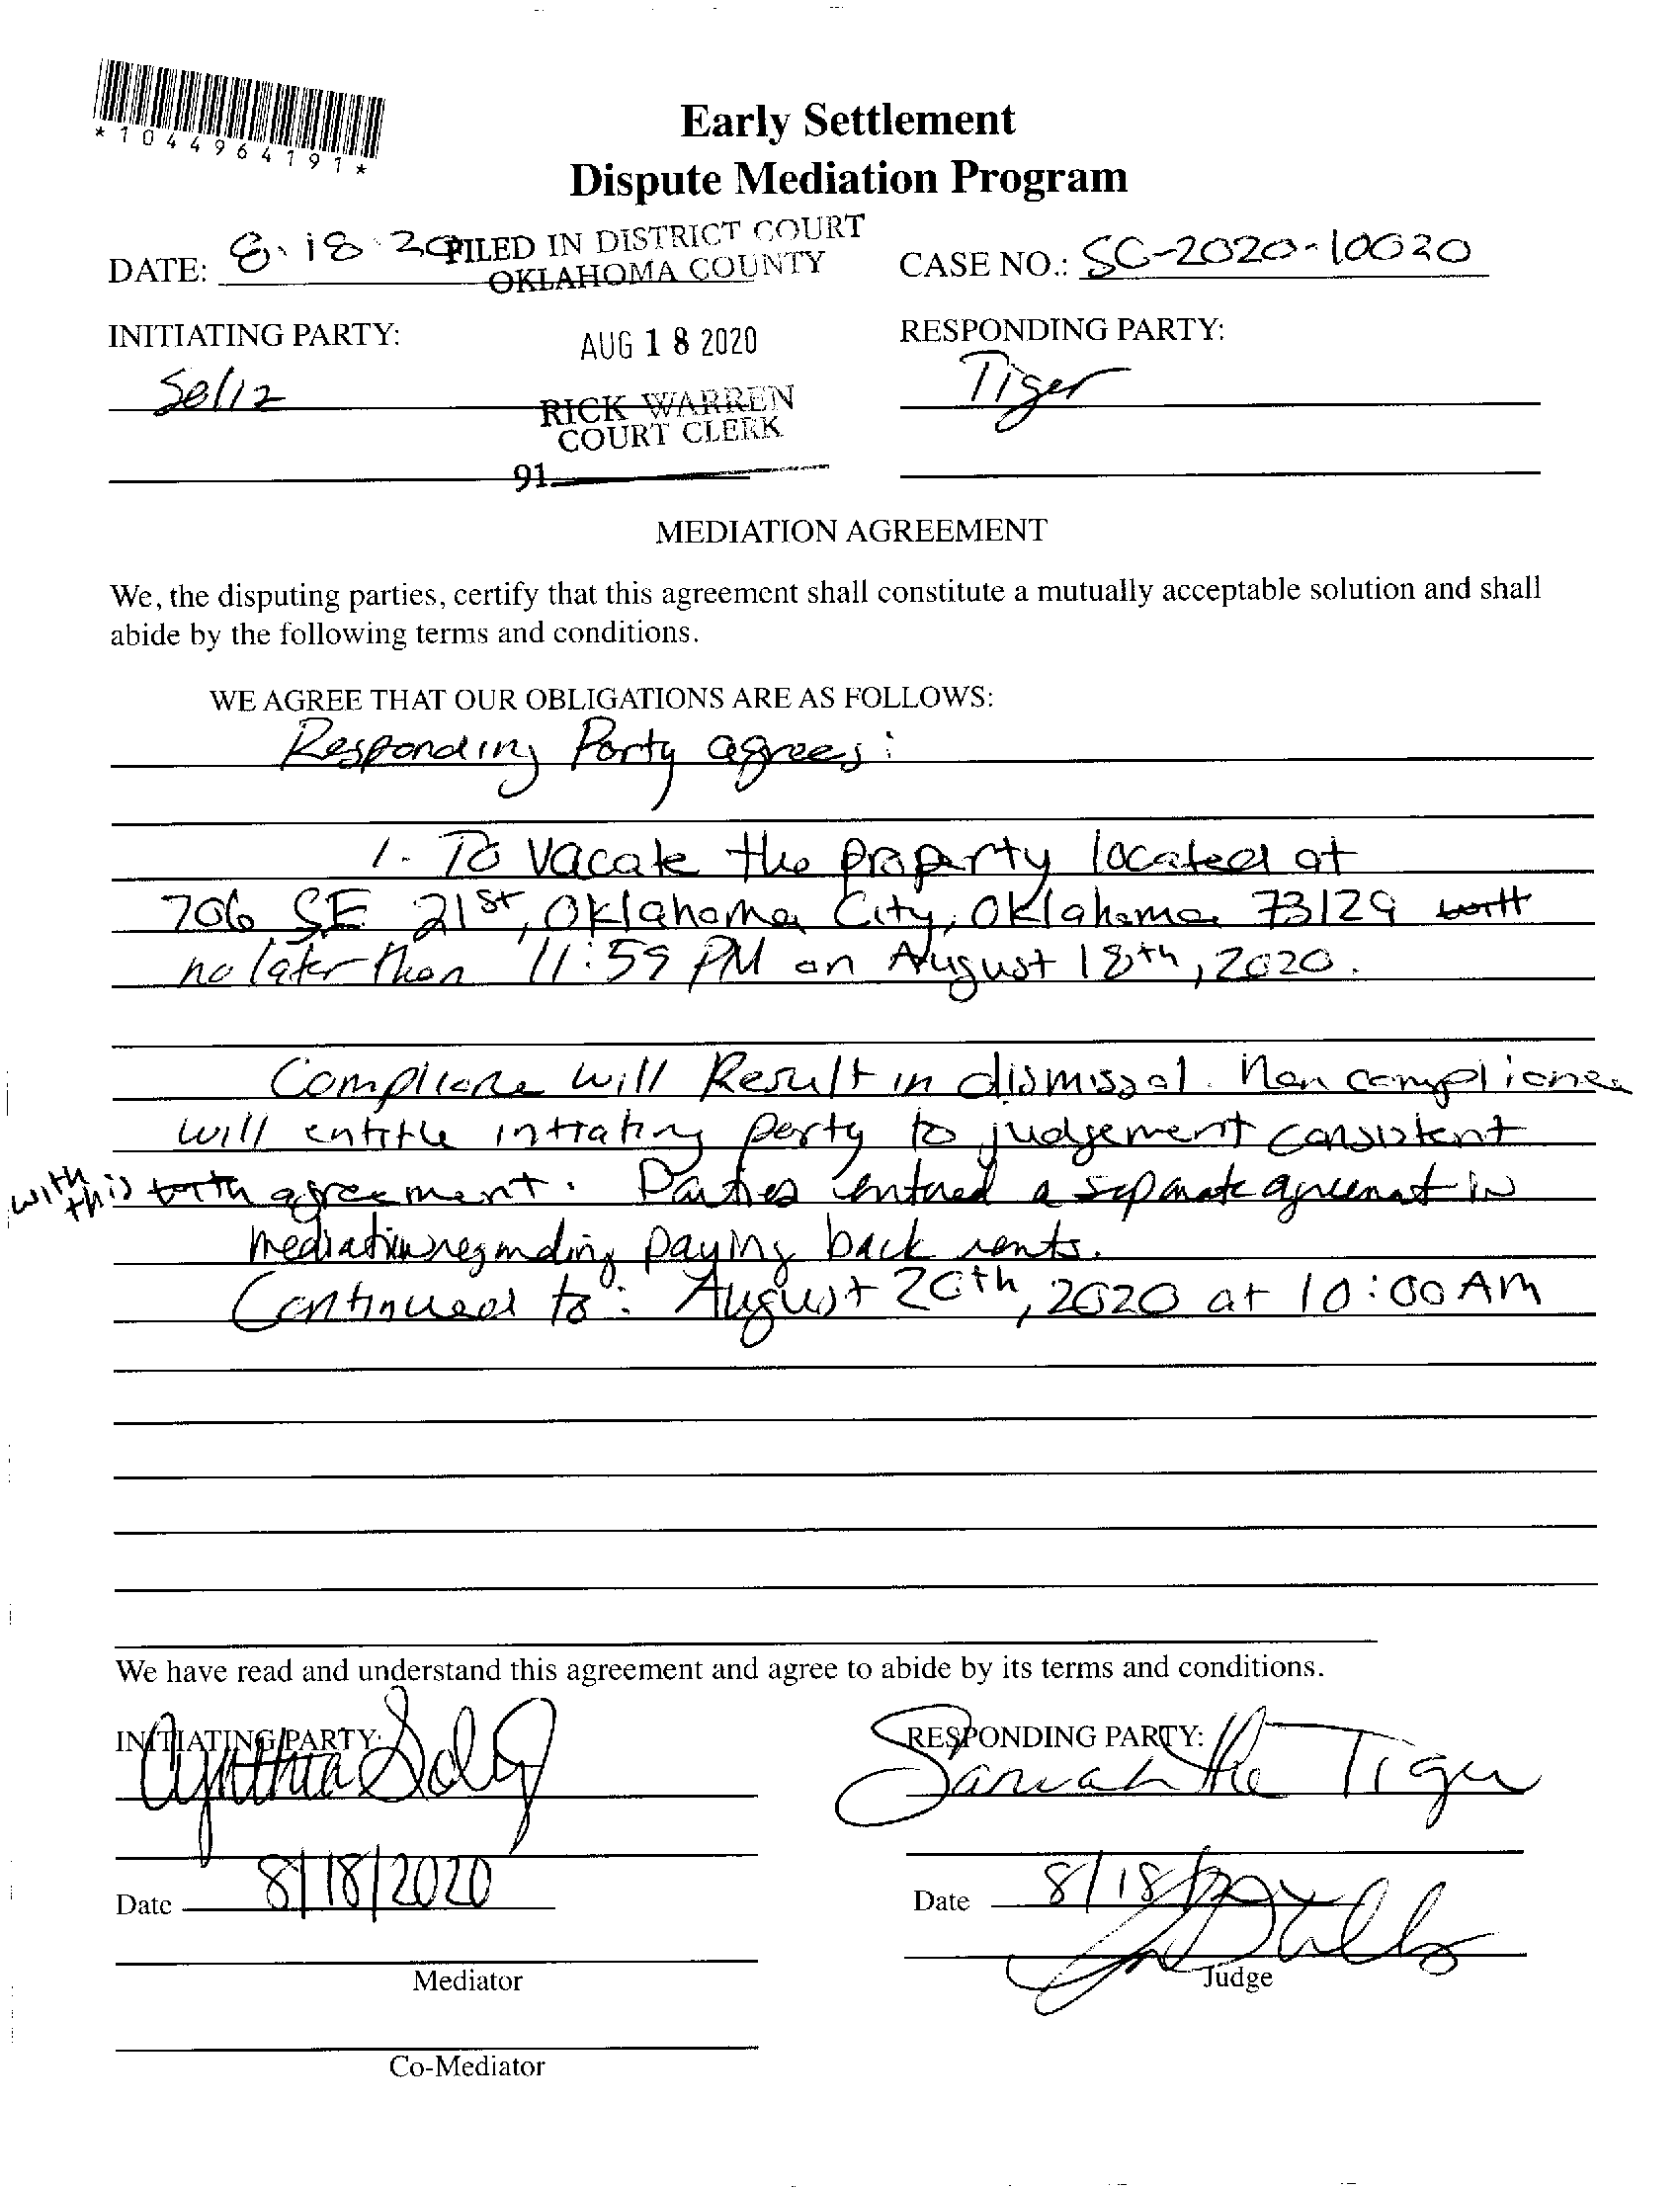 *1044964191*
Early Settlement
Dispute Mediation Program
DATE: 8.18.20 FILED IN DISTRICT COURT
OKLAHOMA COUNTY
CASE NO.: SC-2020-10020
INITIATING PARTY:
AUG 18 2020
RESPONDING PARTY:
Tiger
RICK WARREN
COURT CLERK
91
MEDIATION AGREEMENT
We, the disputing parties, certify that this agreement shall constitute a mutually acceptable solution and shall
abide by the following terms and conditions.
WE AGREE THAT OUR OBLIGATIONS ARE AS FOLLOWS:
Responding Party agrees:
1. To vacate the property located at
706 SE 21st, Oklahoma City, Oklahoma 73129
no later than 11:59 PM on August 18th, 2020.
Compliance will Result in dismissal. Non compliance
will entitle intiating party to judgement consistent
with this agreement. Parties entered a separate agreement in
mediation regarding paying back rents.
Continued to: August 20th, 2020 at 10:00 AM
We have read and understand this agreement and agree to abide by its terms and conditions.
INITIATING PARTY:
Cynthia
RESPONDING PARTY:
Samantha Tiger
Date 8/18/2020
Date 8/18/20
Mediator
Judge
Co-Mediator